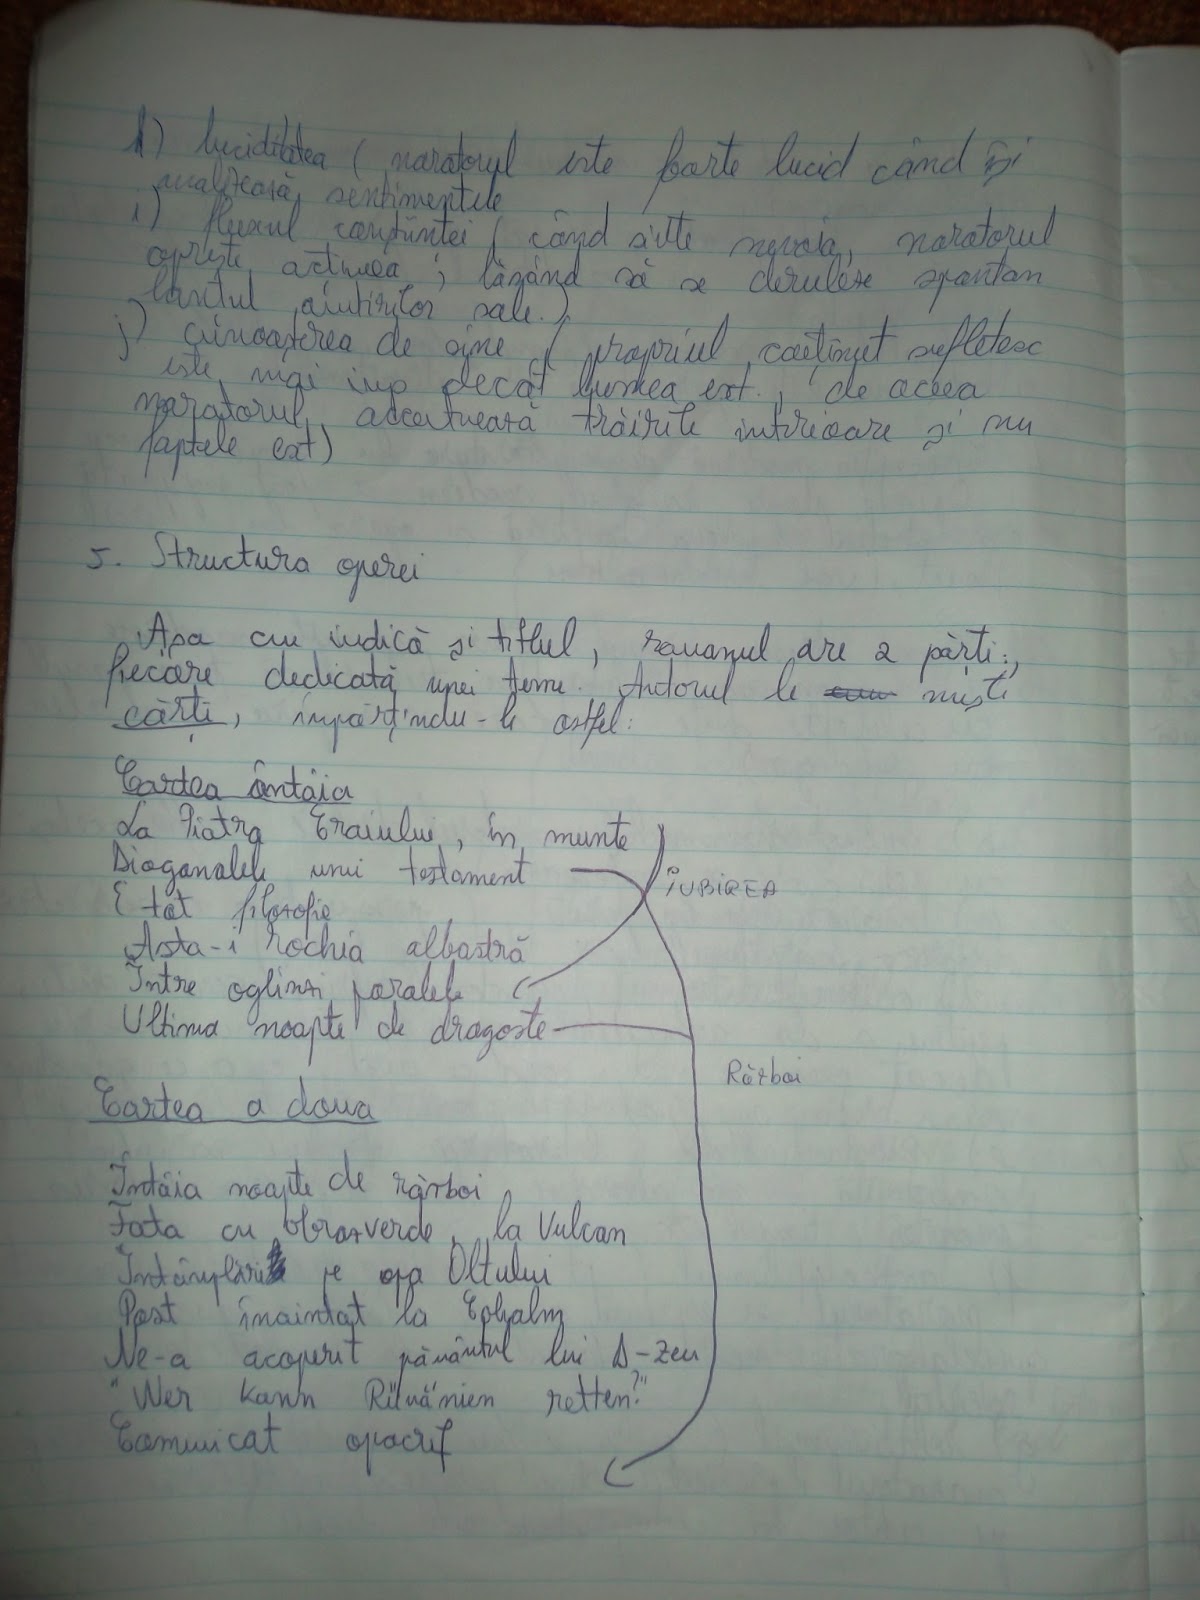 h) luciditatea ( naratorul este foarte lucid când își
analizează sentimentele
i) fluxul conștiinței ( când simte nevoia, naratorul
oprește acțiunea, lăsând să se deruleze spontan
lanțul amintirilor sale.)
j) cunoașterea de sine ( propriul conținut sufletesc
este mai imp decât lumea ext., de aceea
naratorul accentuează trăirile interioare și nu
faptele ext)
5. Structura operei
Așa cum indică și titlul, romanul are 2 părți,
fiecare dedicată unei teme. Autorul le numește
cărți, împărțindu-le astfel:
Cartea întâia
La Piatra Craiului, în munte
Diagonalele unui testament
IUBIREA
E tot filosofie
Asta-i rochia albastră
Între oglinzi paralele
Ultima noapte de dragoste
Război
Cartea a doua
Întâia noapte de război
Fata cu obraz verde, la Vulcan
Întâmplări pe apa Oltului
Post înaintat la Cohalm
Ne-a acoperit pământul lui D-zeu
"Wer kann Rümänien retten?"
Comunicat apocrif